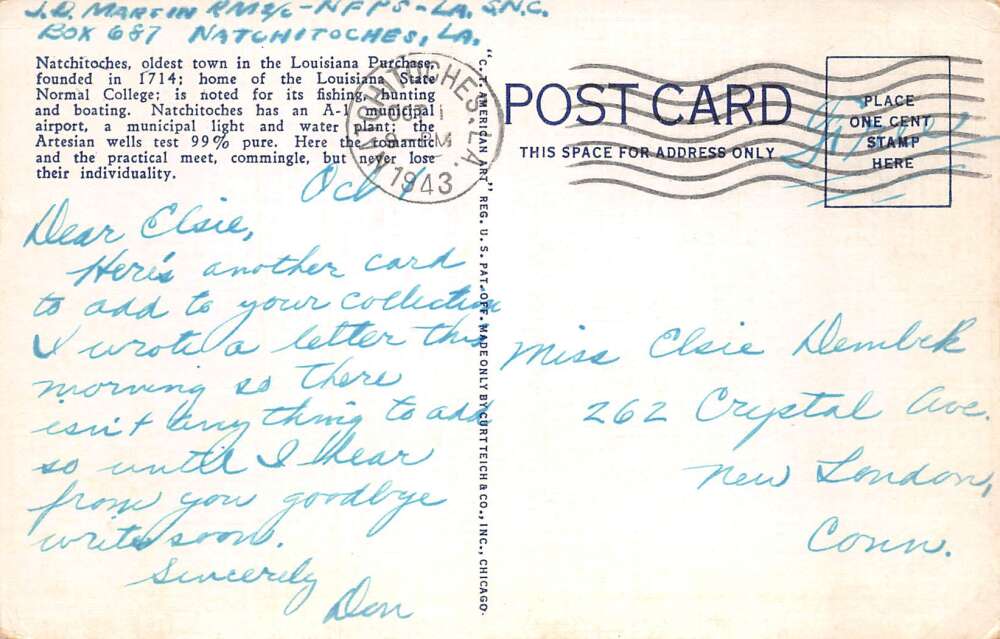 J.D. MARTIN RM2/c - NFPS - LA. S.N.C.
BOX 687 NATCHITOCHES, LA.
Natchitoches, oldest town in the Louisiana Purchase,
founded in 1714; home of the Louisiana State
Normal College; is noted for its fishing, hunting
and boating. Natchitoches has an A-1 municipal
airport, a municipal light and water plant; the
Artesian wells test 99% pure. Here the romantic
and the practical meet, commingle, but never lose
their individuality.
NATCHITOCHES, LA.
OCT 1
PM
1943
Oct 1
Dear Elsie,
Here's another card
to add to your collection
I wrote a letter this
morning so there
isn't anything to add
so until I hear
from you goodbye
write soon.
Sincerely
Don
"C. T. AMERICAN ART" REG. U. S. PAT. OFF. MADE ONLY BY CURT TEICH & CO., INC., CHICAGO.
POST CARD
THIS SPACE FOR ADDRESS ONLY
PLACE
ONE CENT
STAMP
HERE
Miss Elsie Dembek
262 Crystal Ave.
New London,
Conn.